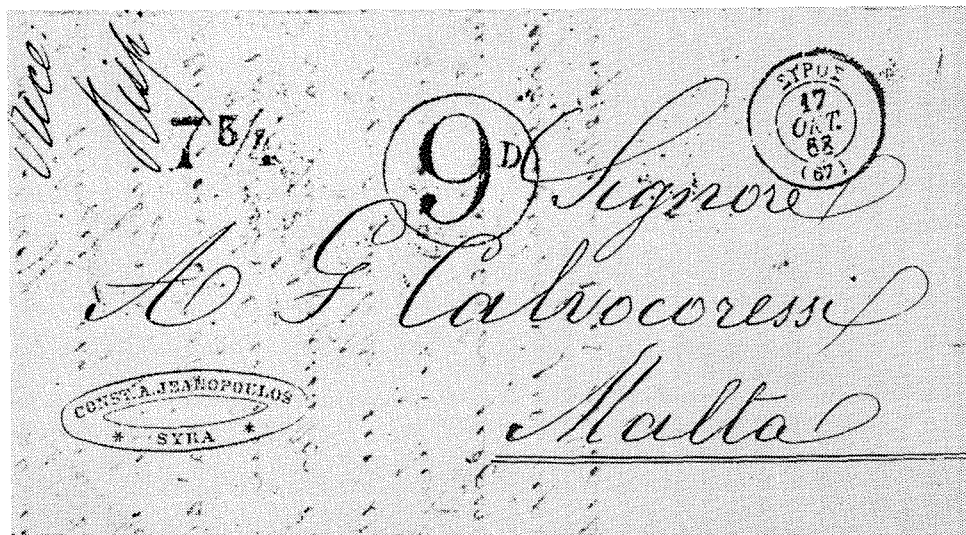 7 5/4
9 D
ΣΥΡΟΣ
17
ΟΚΤ.
(67)
Signore
A G Calvocoressi
Malta
CONST. A. JEANOPOULOS
* SYRA *